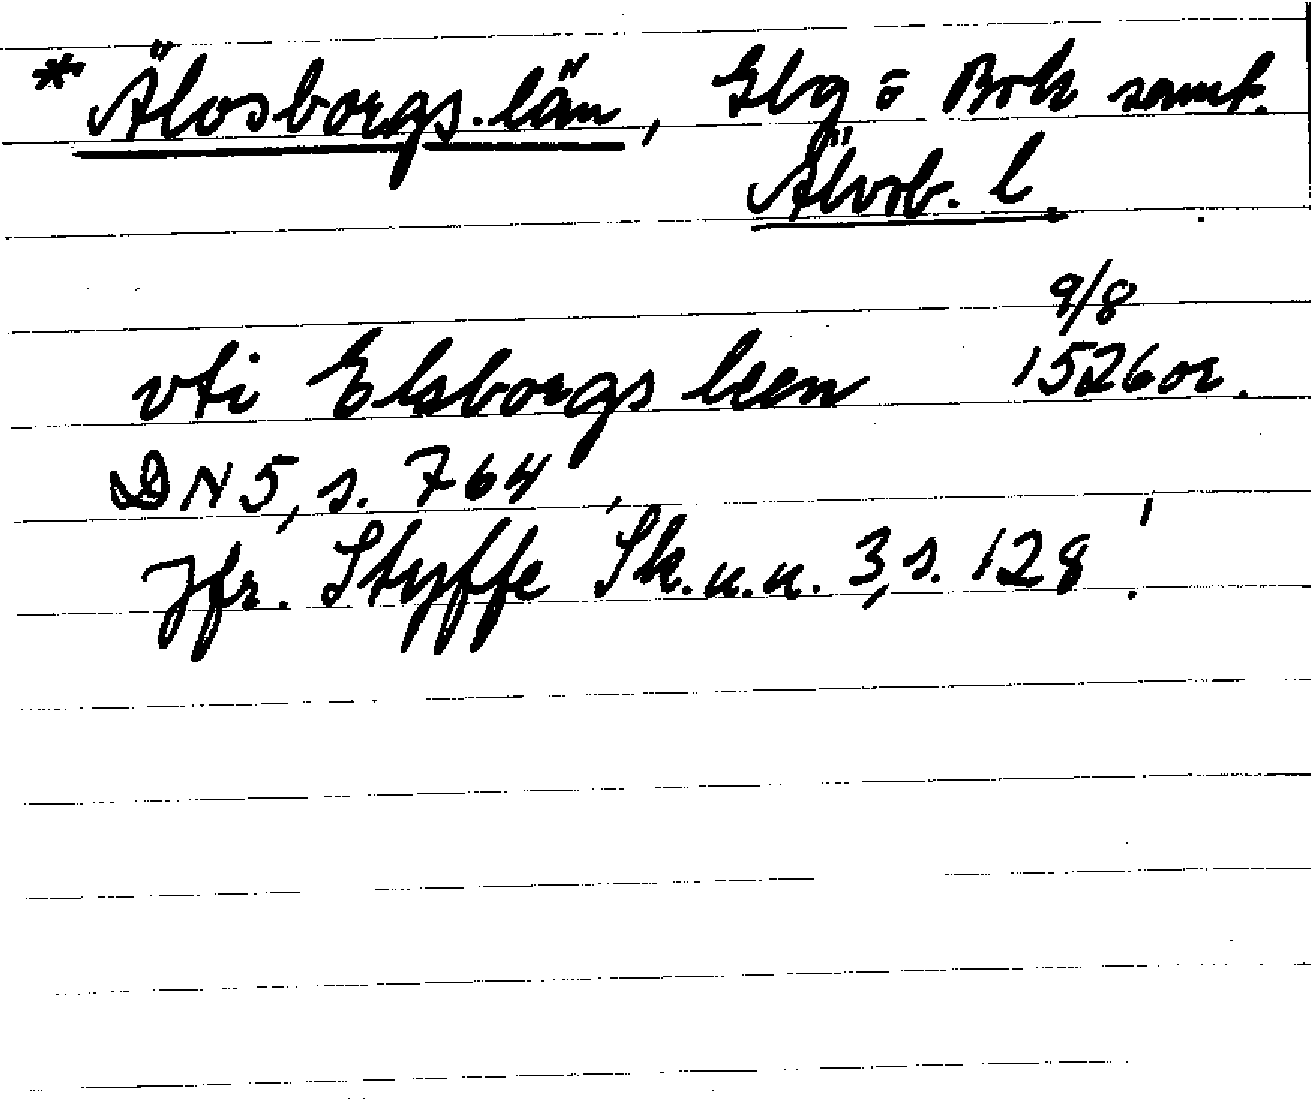 * Älvsborgs län, Gbg o Boh samt.
Älvsb. l.
9/8
vti Elsborgs leen 1526 or.
DN 5, s. 764
Jfr. Styffe Sk.u.u. 3, s. 128!